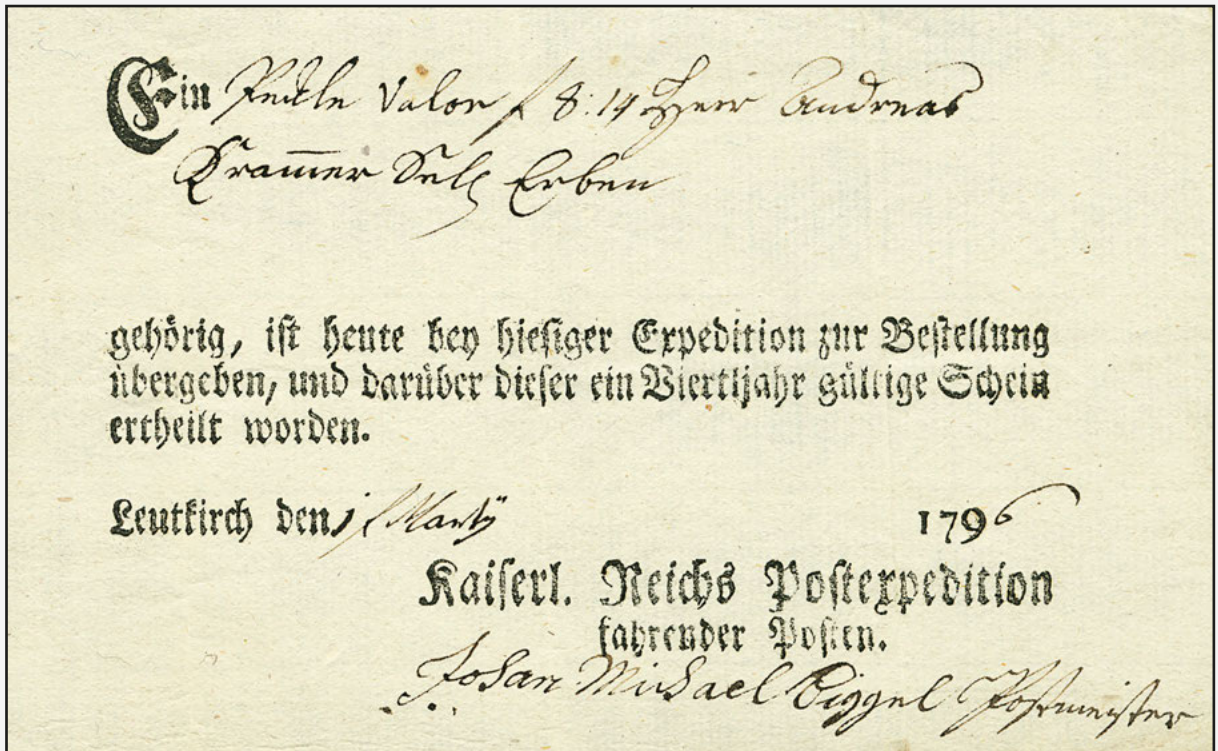 Ein Päckle Valor f 8: 14 Herr Andreas
Kram̅er Sel. Erben
gehörig, ist heute bey hiesiger Expedition zur Bestellung
übergeben, und darüber dieser ein Viertljahr gültige Schein
ertheilt worden.
Leutkirch den Marty 1796
Kaiserl. Reichs Postexpedition
fahrender Posten.
Johan Michael Biggel Postmeister